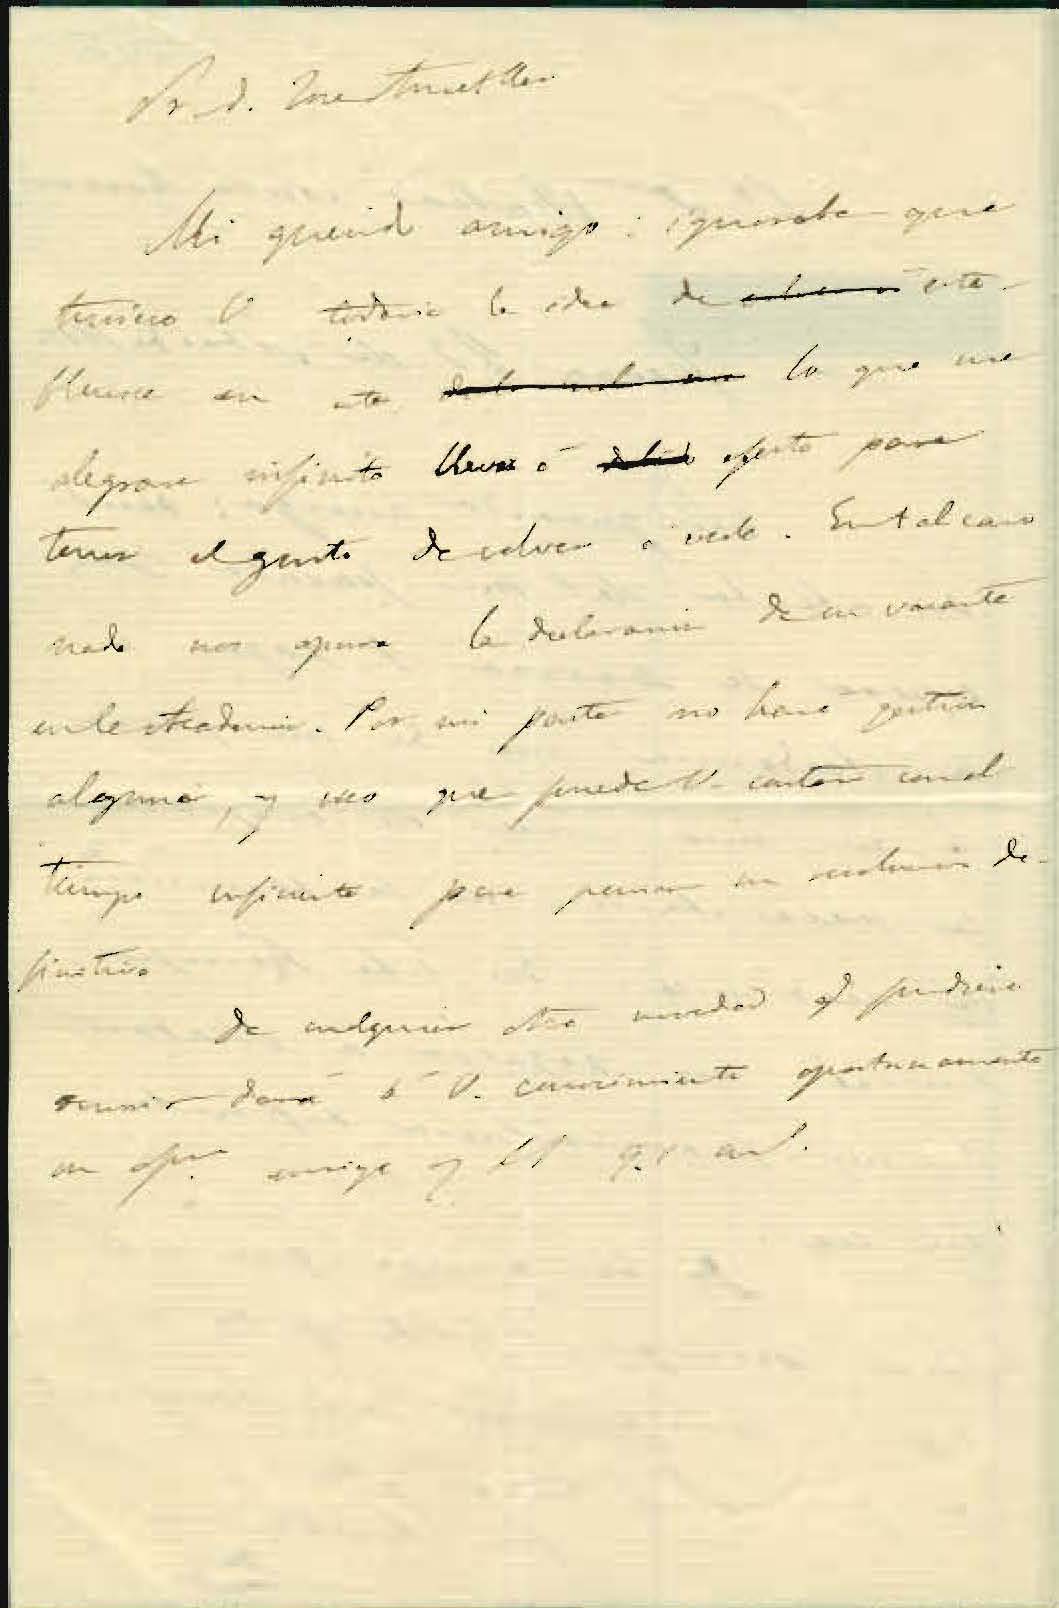 Sr. D.
Mi querido amigo: ignoraba que
tuviera V. todavia la idea de esta-
blecerse en esta lo que me
alegrara infinito llevar á efecto para
tener el gusto de volver á verle. En tal caso
nada nos apura la declaracion de su vacante
en la Academia. Por mi parte no haré gestion
alguna, y creo que puede V. contar con el
tiempo infinito para pensar su de-
finitiva
De cualquier otra novedad q pudiera
ocurrir dará á V. conocimiento oportunamente
su amigo y